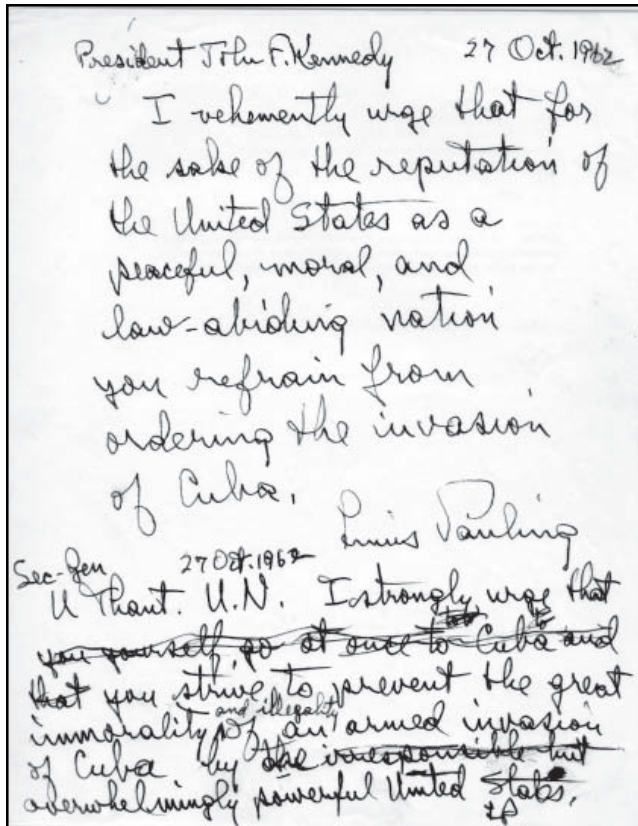 President John F. Kennedy 27 Oct. 1962
I vehemently urge that for
the sake of the reputation of
the United States as a
peaceful, moral, and
law-abiding nation
you refrain from
ordering the invasion
of Cuba.
Linus Pauling
Sec-Gen 27 Oct. 1962
U Thant. U.N. I strongly urge that
you yourself go at once to Cuba and
that you strive to prevent the great
and illegality
immorality of an armed invasion
of Cuba by the irresponsible but
overwhelmingly powerful United States.
LP